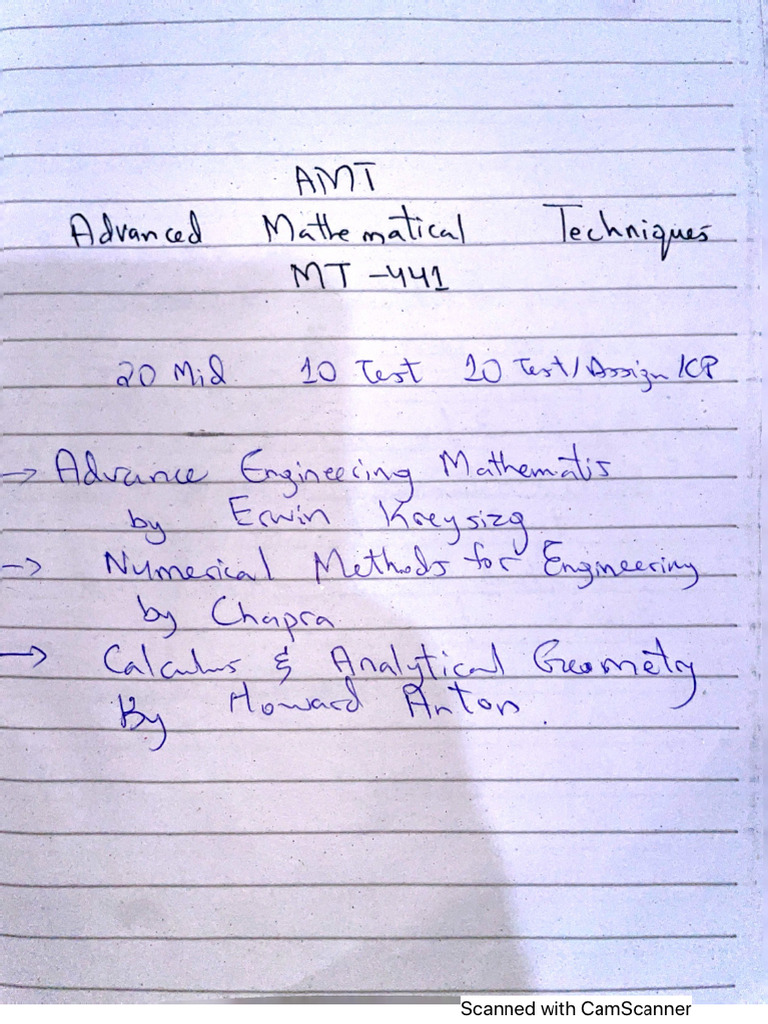 AMT
Advanced Mathematical Techniques
MT -441
20 Mid. 10 Test 10 Test/Assign/CP
→ Advance Engineering Mathematis
by Erwin Kreysizg
→ Numerical Methods for Engineering
by Chapra
→ Calculus & Analytical Geometry
By Howard Anton.
Scanned with CamScanner